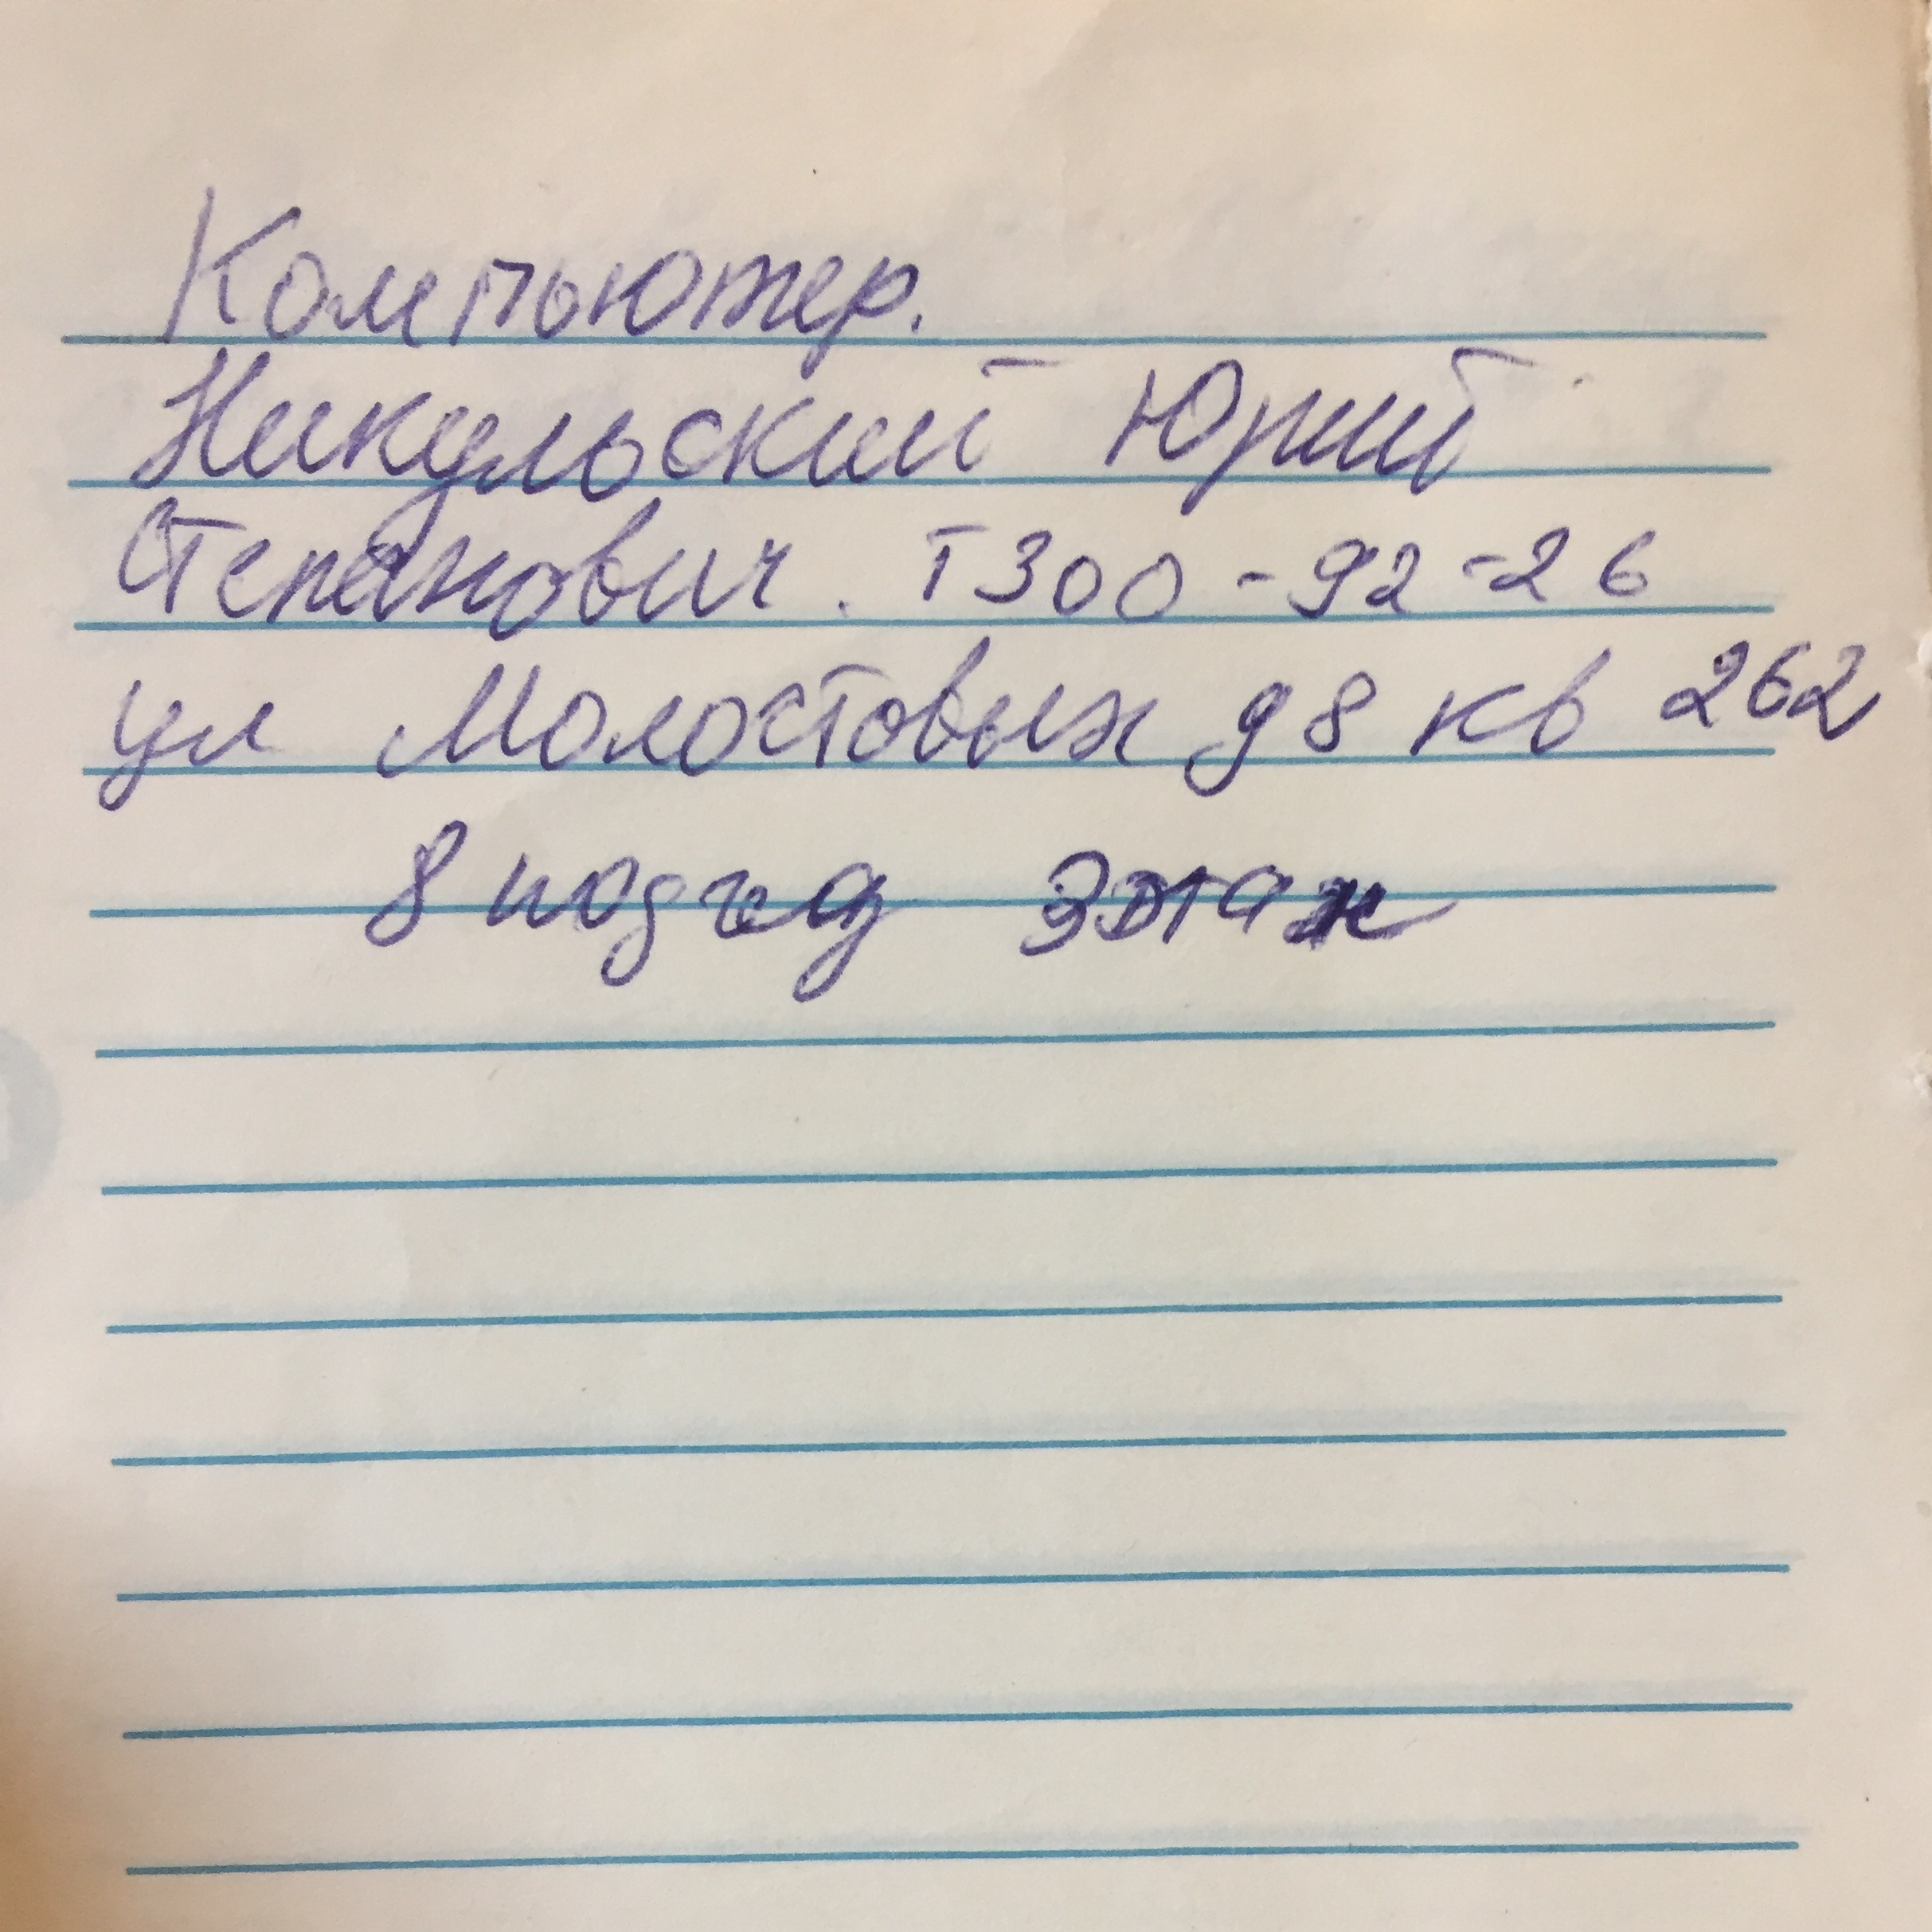 Компьютер.
Никульский Юрий
Степанович. т 300-92-26
ул Молостовых д 8 кв 262
8 подъед этаж